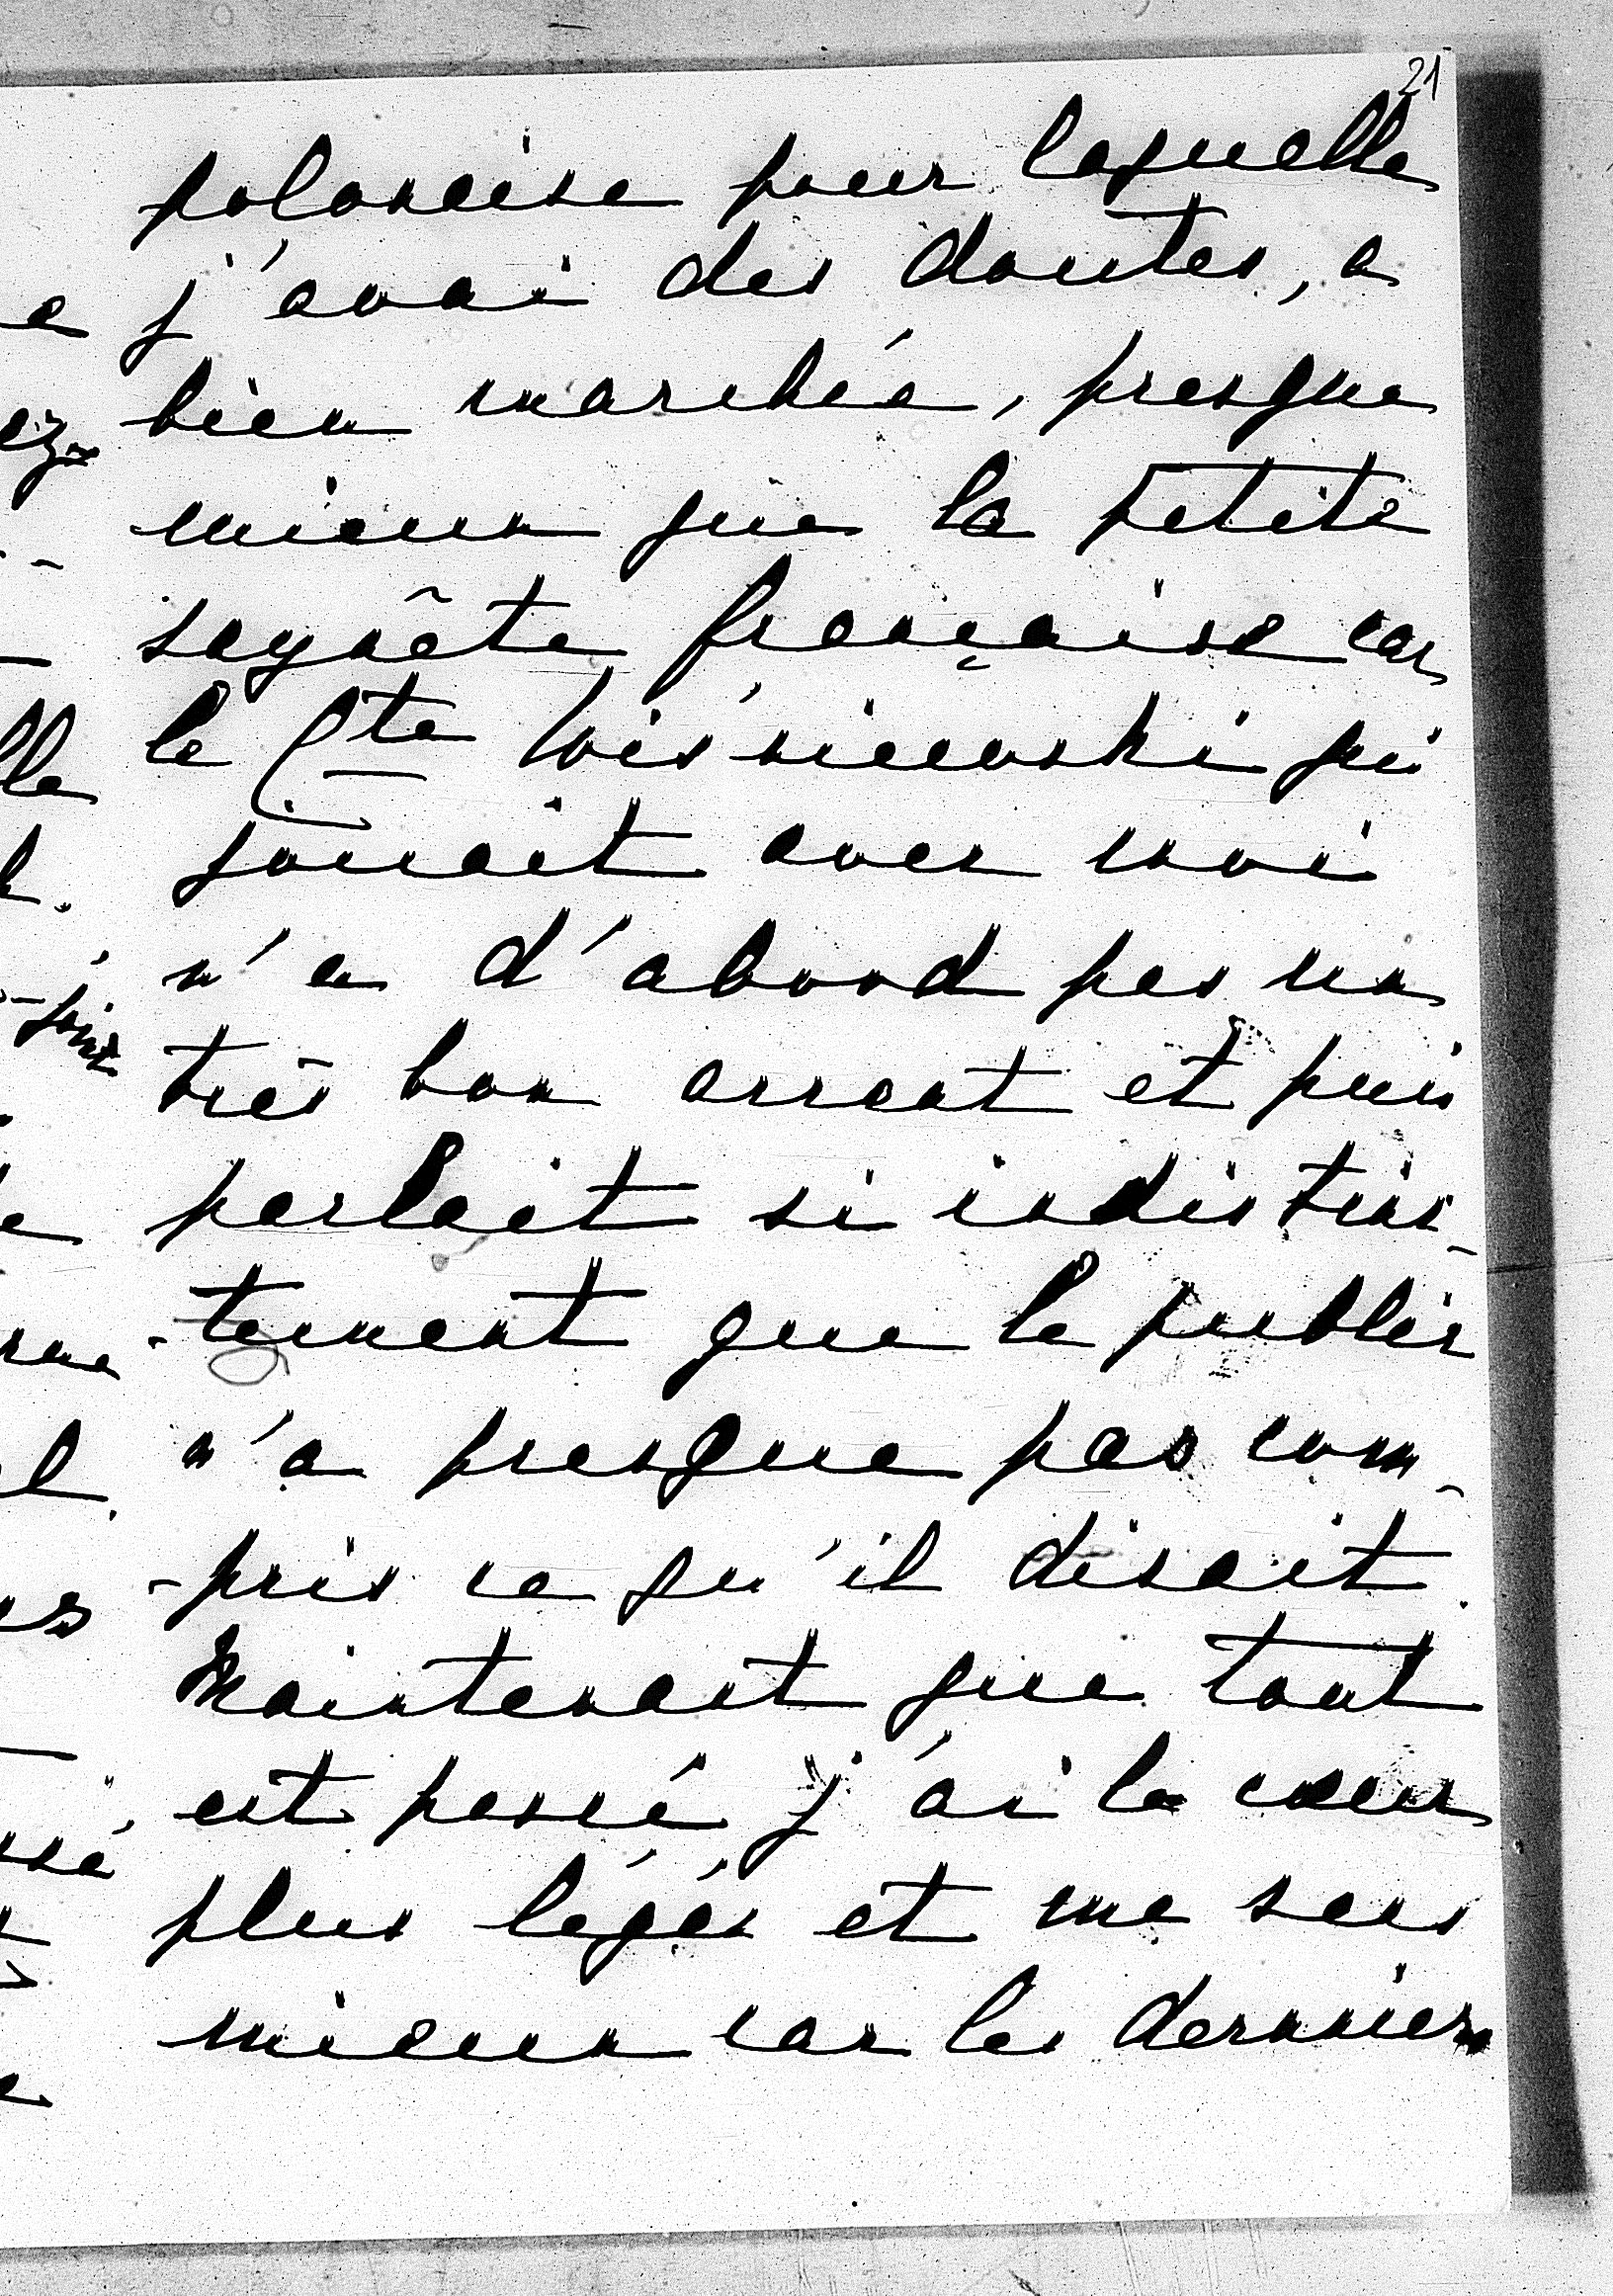 21
polonaise pour laquelle
j'avai des doutes, a
bien marché, presque
mieux que la petite
saynête française car
le Cte Wiśniewski qui
jouait avec moi
n'a d'abord pas un
très bon accent et puis
parlait si indistinc-
-tement que le public
n'a presque pas com-
-pris ce qu'il disait.
Maintenant que tout
est passé j'ai le cœur
plus légér et me sens
mieux car les derniers